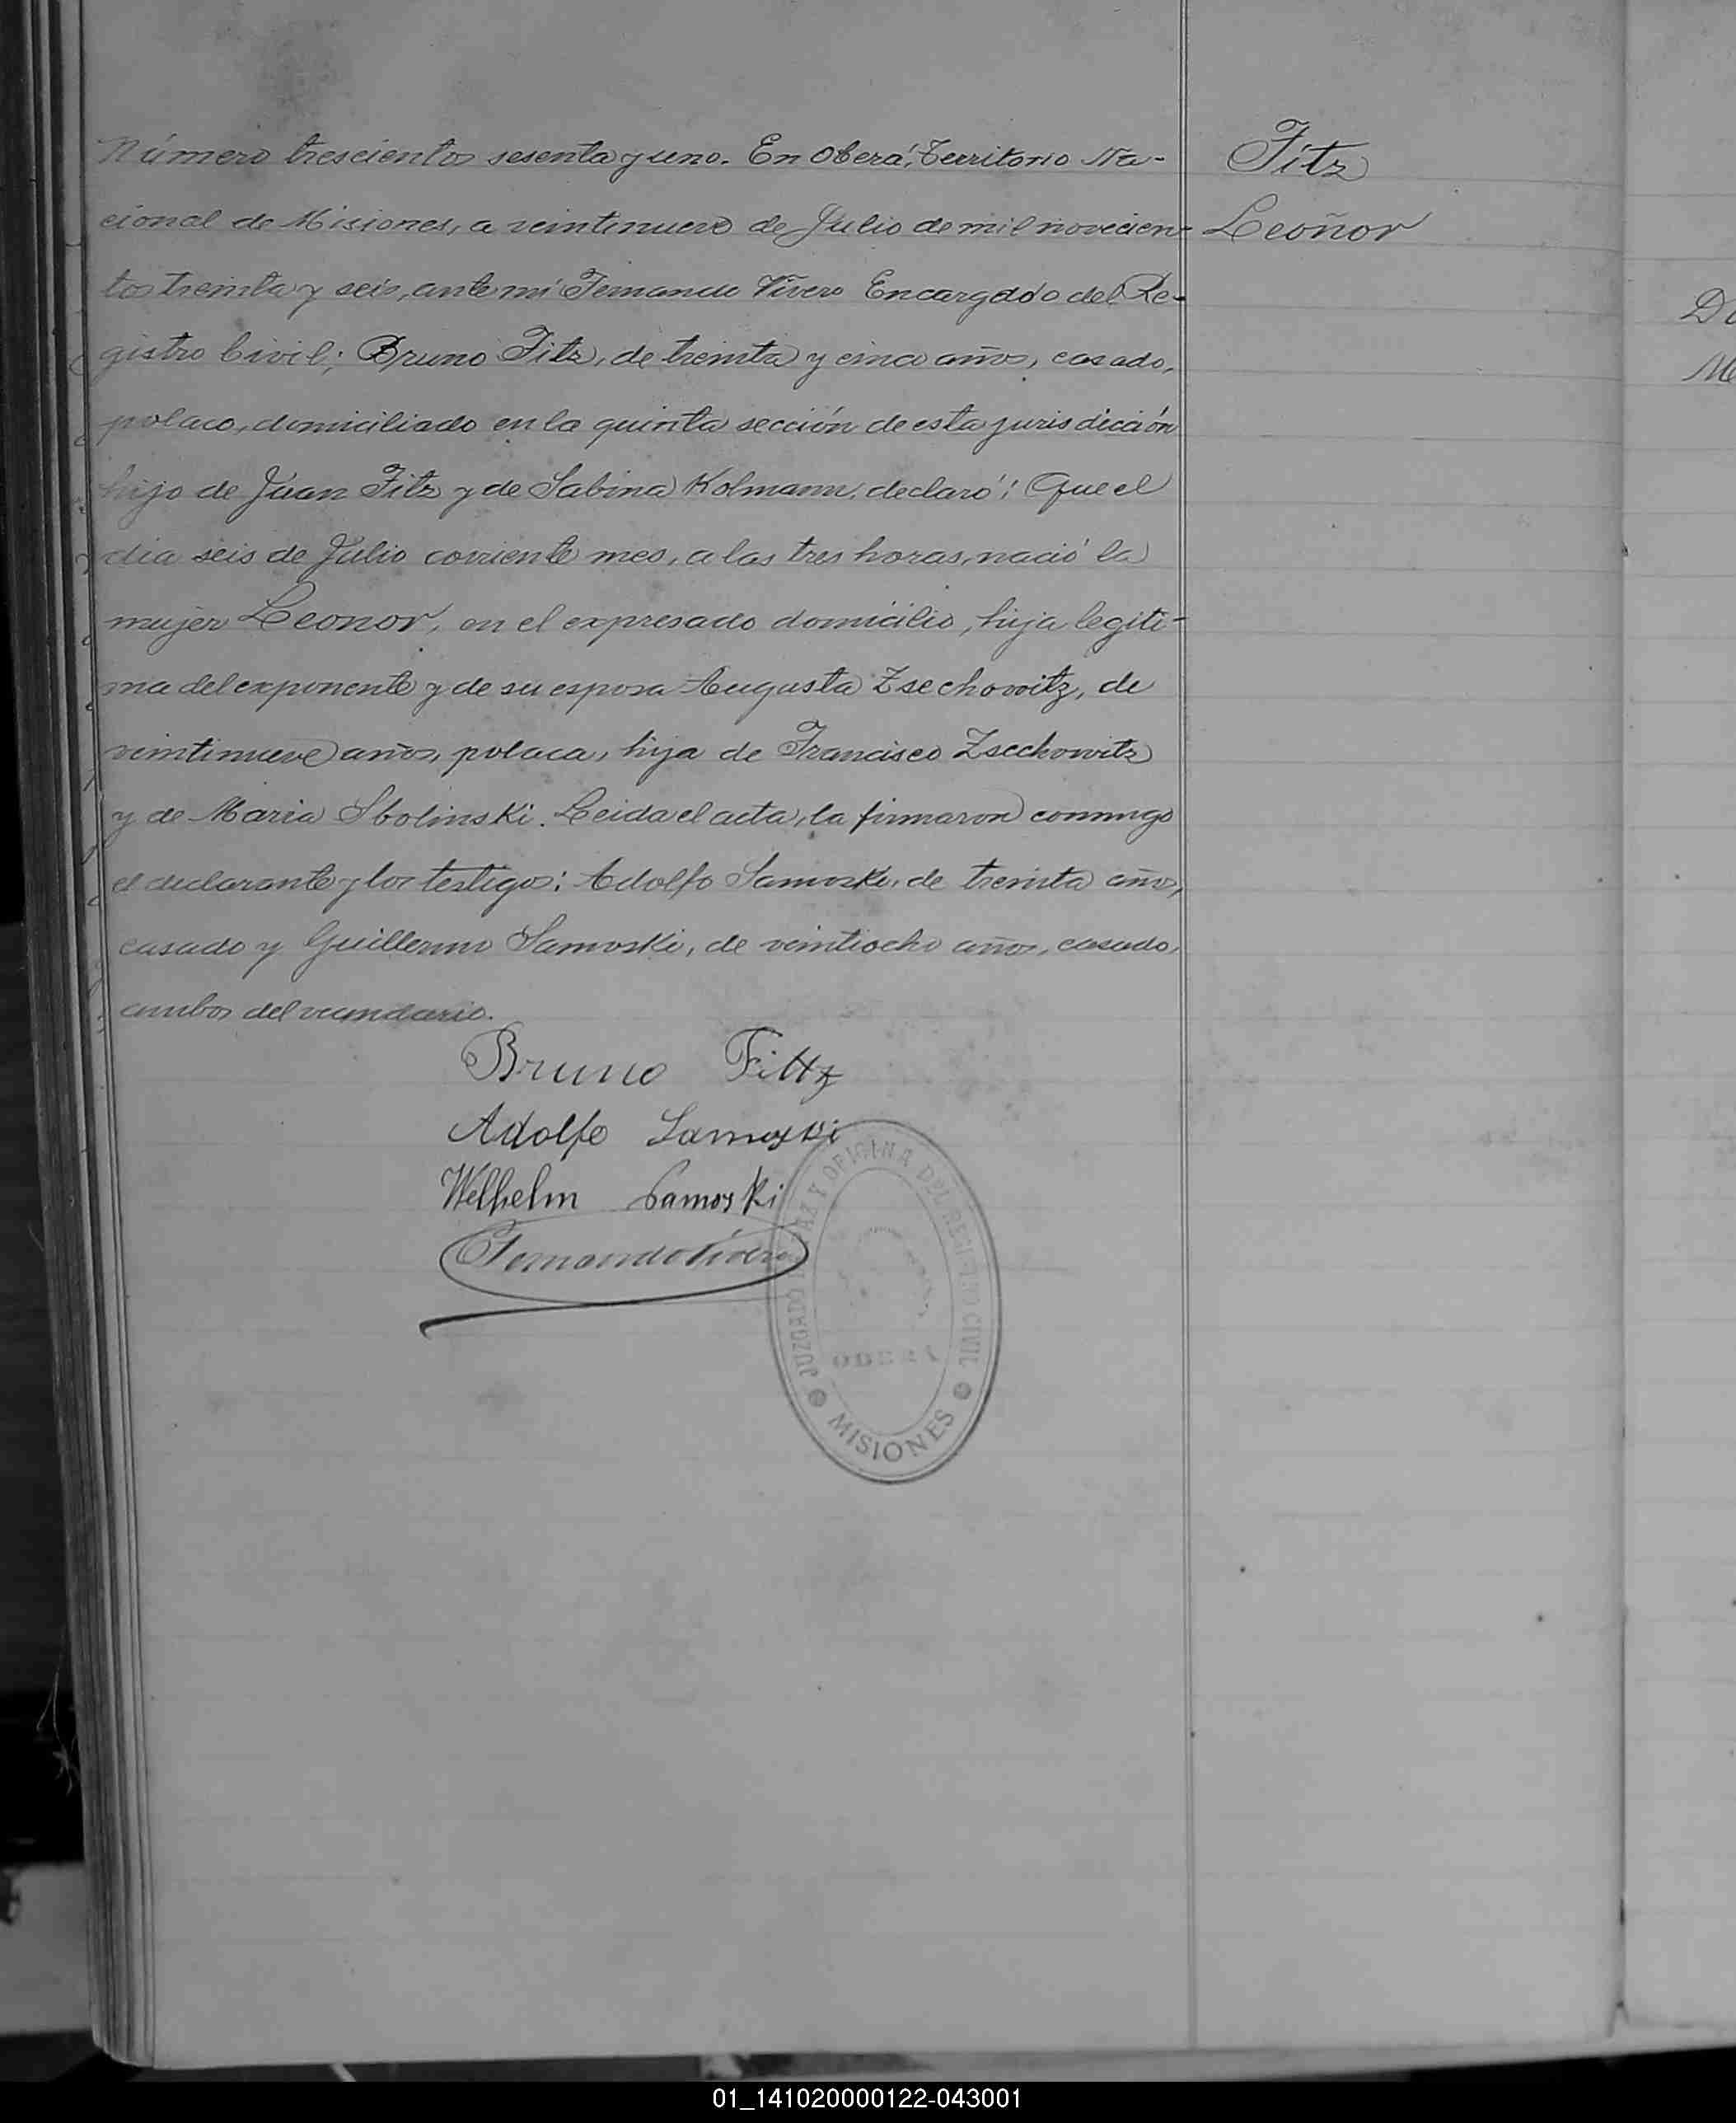 Número trescientos sesenta y uno. En Oberá, Territorio Na-
cional de Misiones, a veintenueve de Julio de mil novecien-
tos treinta y seis, ante mí Fernando Vivero Encargado del Re-
gistro Civil; Bruno Fitz, de treinta y cinco años, casado,
polaco, domiciliado en la quinta sección de esta jurisdicción
hijo de Juan Fitz y de Sabina Kolmann, declaró: Que el
día seis de Julio corriente mes, a las tres horas, nació la
mujer Leonor, en el expresado domicilio, hija legiti-
ma del exponente y de su esposa Augusta Zsechowitz, de
veintinueve años, polaca, hija de Francisco Zsechowitz
y de Maria Sbolinski. Leida el acta, la firmaron conmigo
el declarante y los testigos: Adolfo Samoski, de treinta años,
casado y Guillermo Samoski, de veintiocho años, casado,
ambos del vecindario.
Bruno Fittz
Adolfo Samoski
Welhelm Samoski
Fernando Vivero
JUZGADO DE PAZ Y OFICINA DEL REGISTRO CIVIL
OBERA
MISIONES
Fitz
Leoñor
01_141020000122-043001